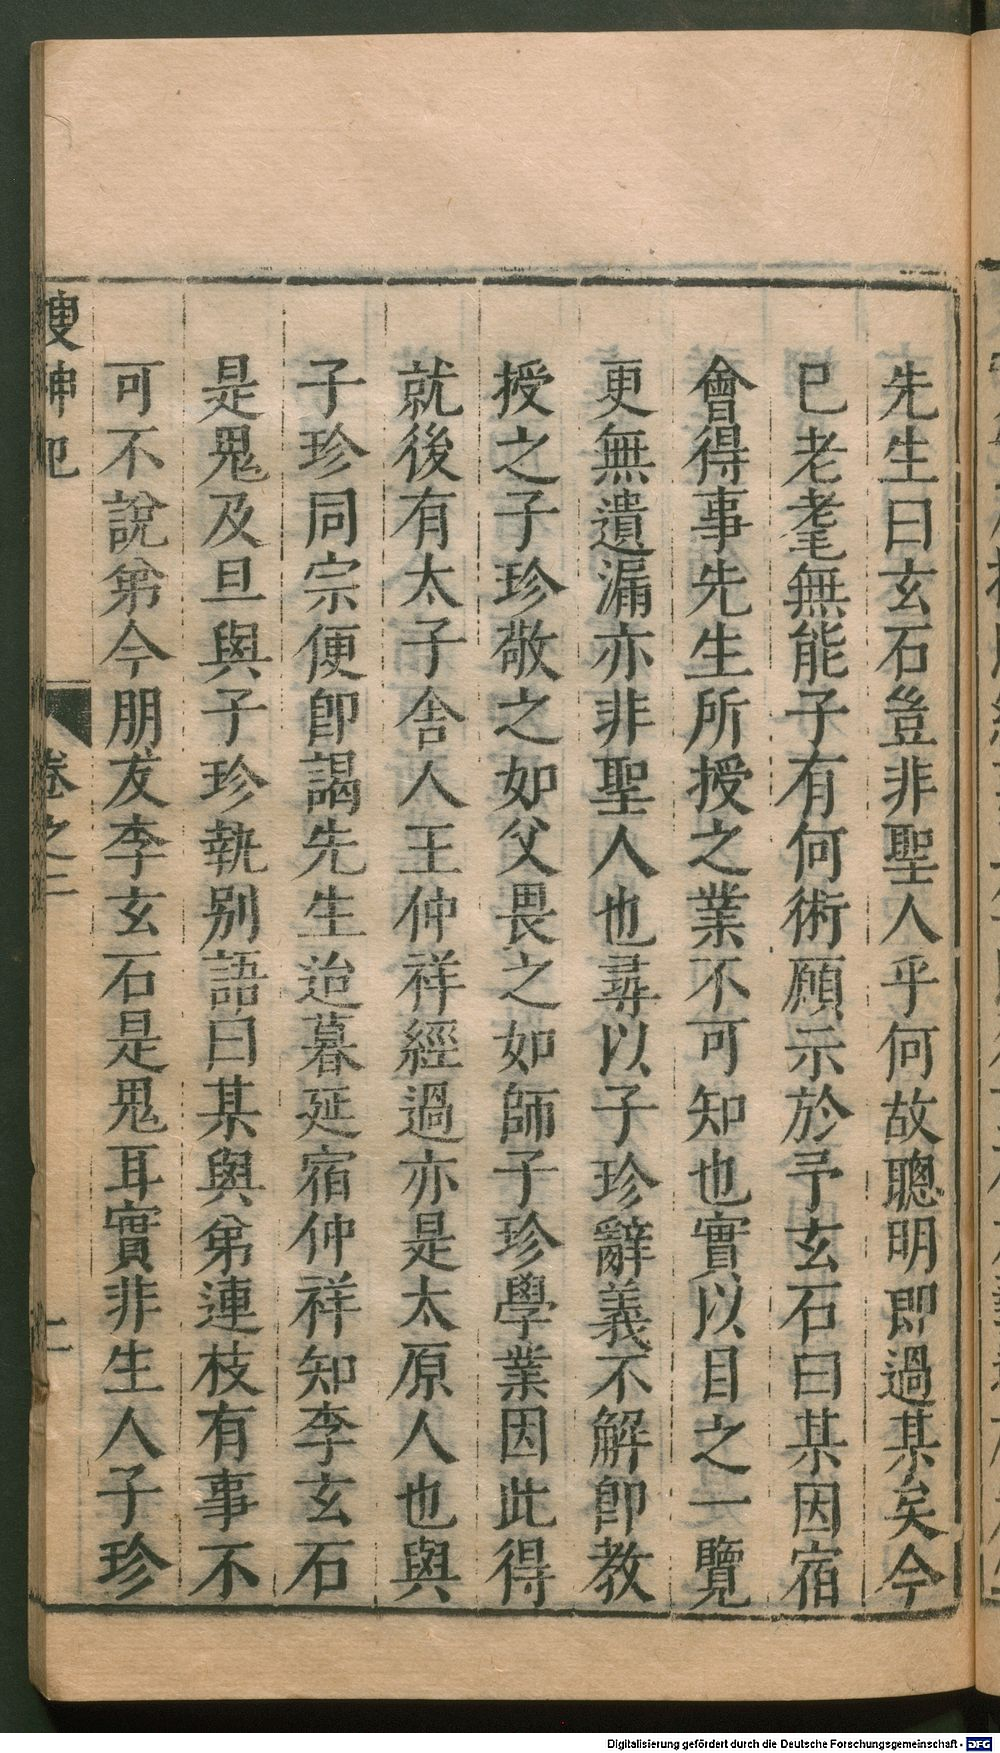 先生曰玄石豈非聖人乎何故聰明即過某矣今
已老耄無能子有何術願示於予玄石曰某因宿
會得事先生所授之業不可知也實以目之一覽
更無遺漏亦非聖人也尋以子珍辭義不解即教
授之子珍敬之如父畏之如師子珍學業因此得
就後有太子舍人王仲祥經過亦是太原人也與
子珍同宗便即謁先生迨暮延宿仲祥知李玄石
是鬼及旦與子珍執别語曰某與弟連枝有事不
可不說弟今朋友李玄石是鬼耳實非生人子珍
搜神記 卷之二
Digitalisierung gefördert durch die Deutsche Forschungsgemeinschaft - DFG